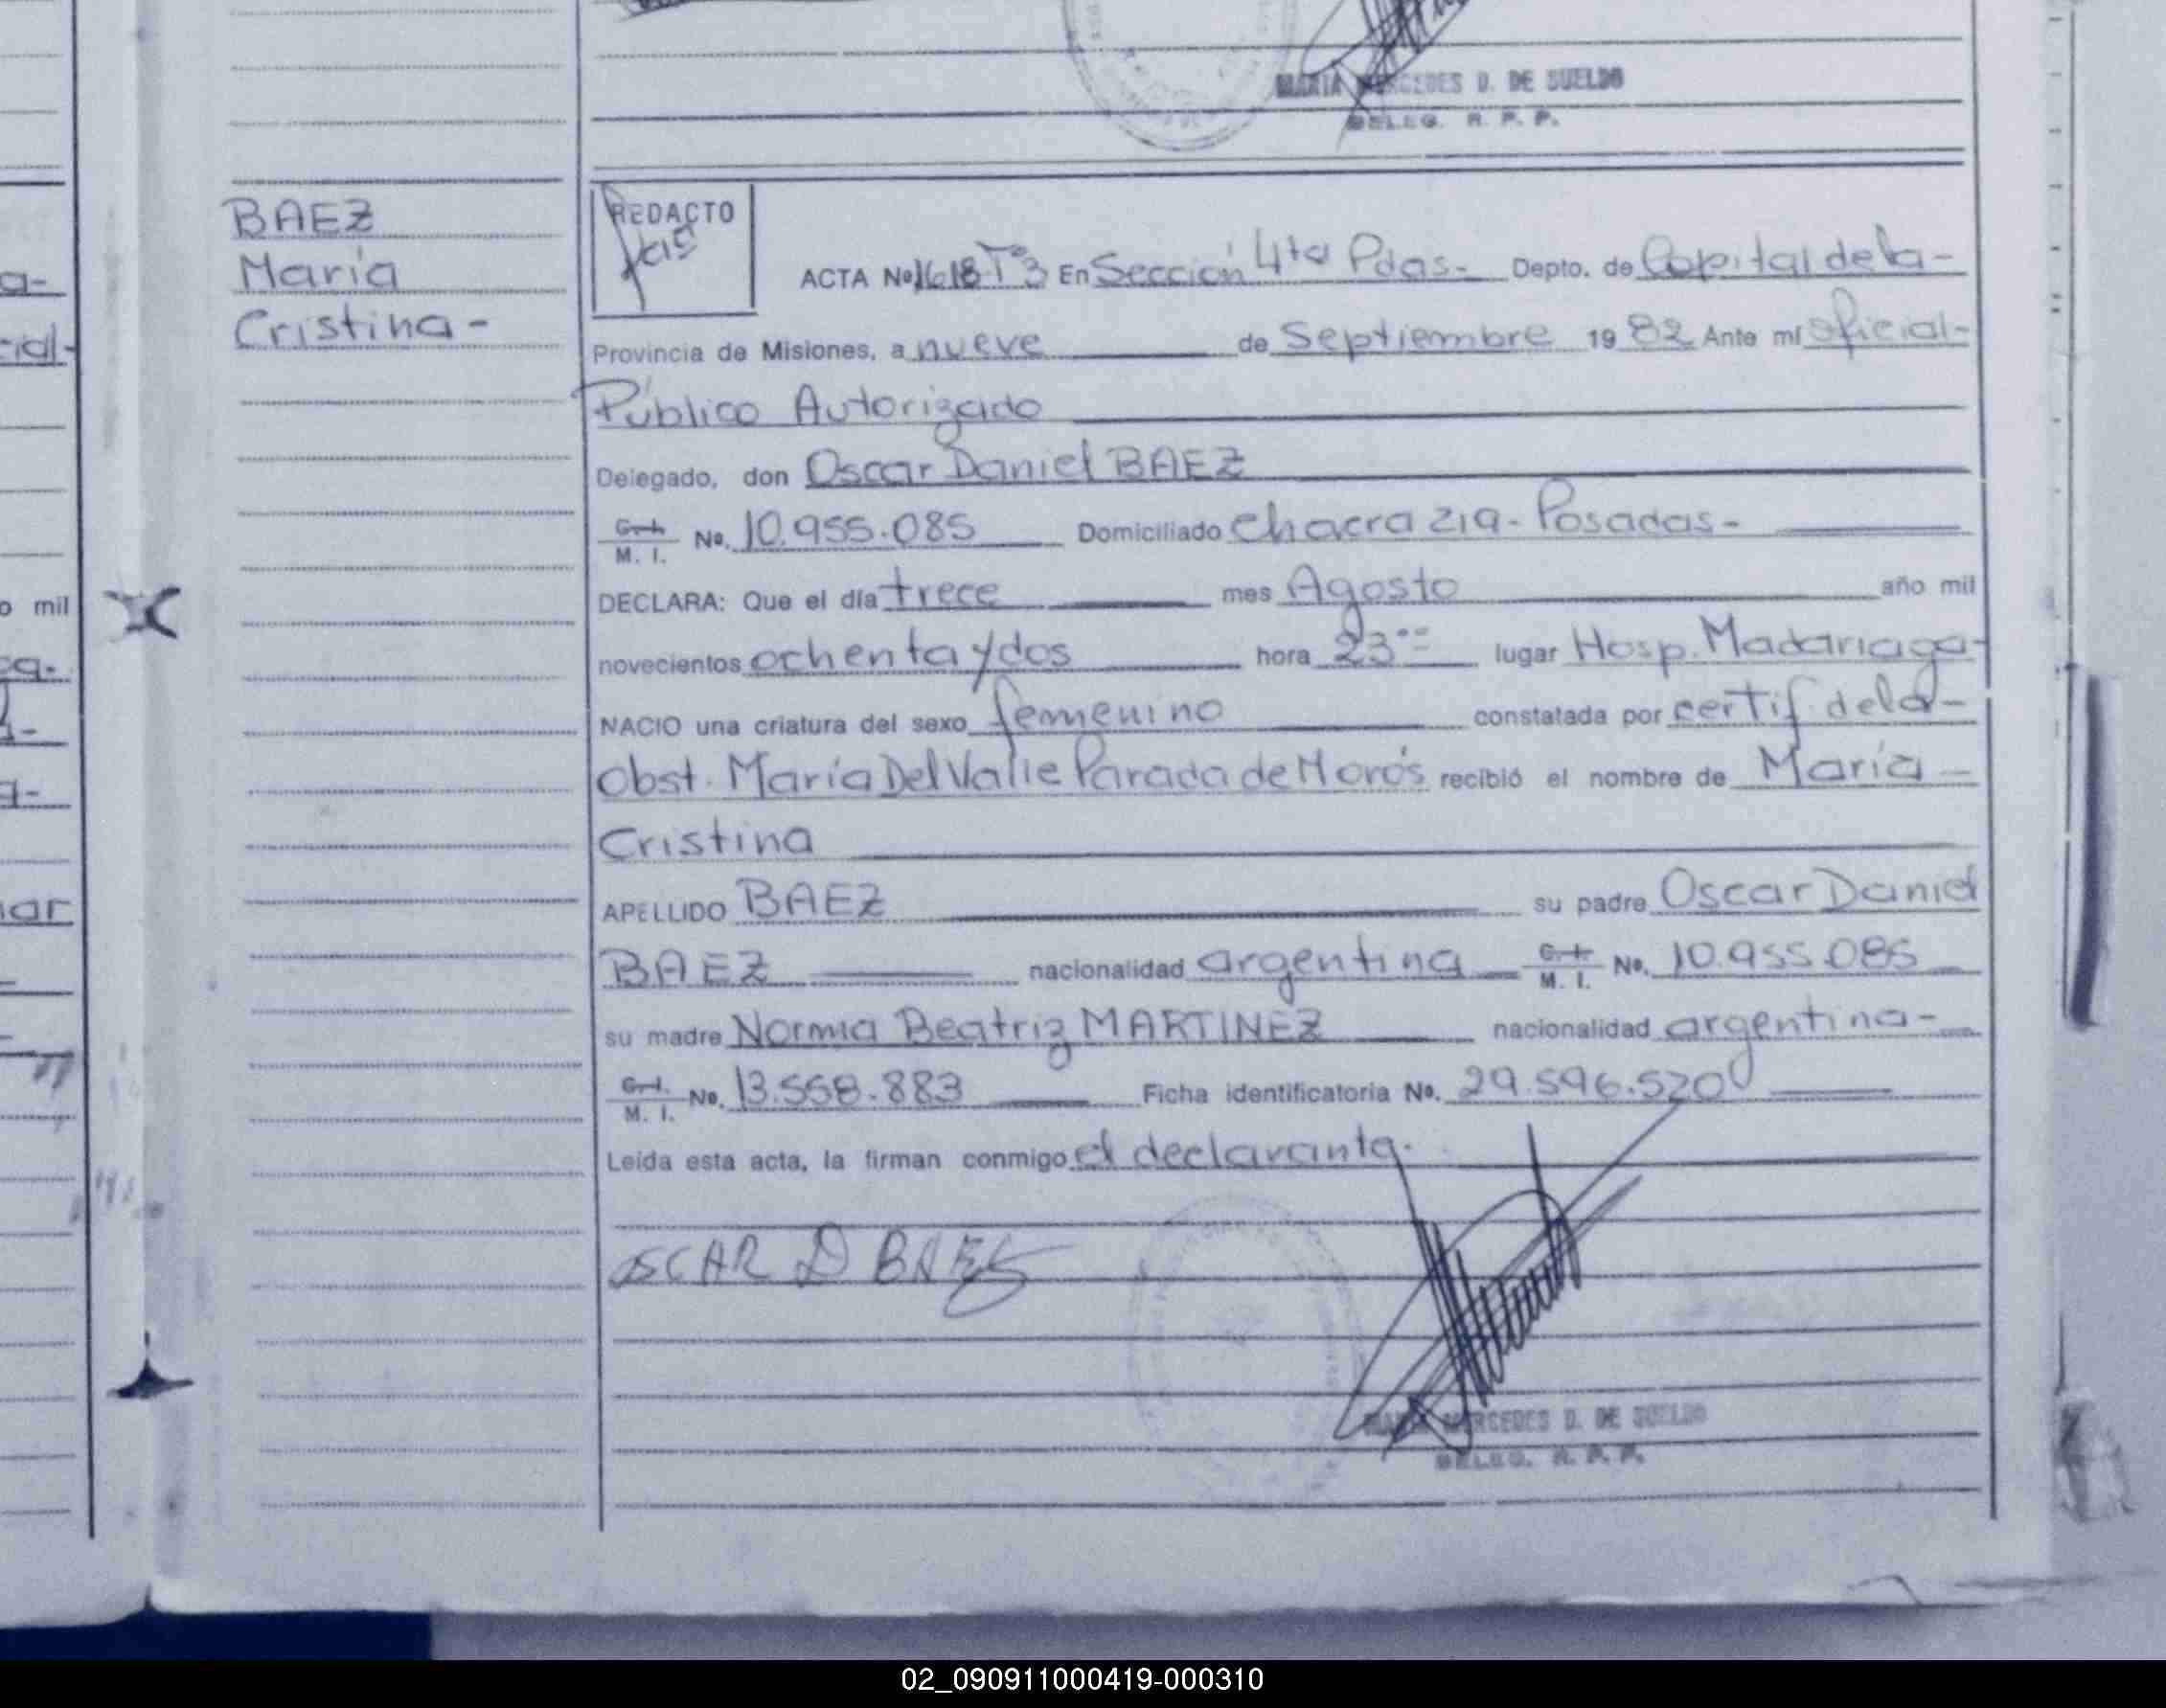 MARIA MERCEDES D. DE SUELDO
DELEG. R. P. P.
BAEZ
María
Cristina-
REDACTO
ACTA Nº 1618 Tº3 En Sección 4ta Pdas- Depto. de Capital de la-
Provincia de Misiones, a nueve de Septiembre 19 82 Ante mí Oficial-
Público Autorizado
Delegado, don Oscar Daniel BAEZ
C. I. / M. I. No. 10.955.085 Domiciliado Chacra 219- Posadas-
DECLARA: Que el día trece mes Agosto año mil
novecientos ochenta y dos hora 23 lugar Hosp. Madariaga-
NACIO una criatura del sexo femenino constatada por certif. de la-
Obst. María Del Valle Parada de Morós recibió el nombre de María-
Cristina
APELLIDO BAEZ su padre Oscar Daniel
BAEZ nacionalidad argentina C. I. / M. I. No. 10.955.085
su madre Norma Beatriz MARTINEZ nacionalidad argentina-
C. I. / M. I. No. 13.558.883 Ficha identificatoria No. 29.596.520
Leída esta acta, la firman conmigo el declarante.
OSCAR D BAEZ
MARIA MERCEDES D. DE SUELDO
DELEG. R. P. P.
02_090911000419-000310